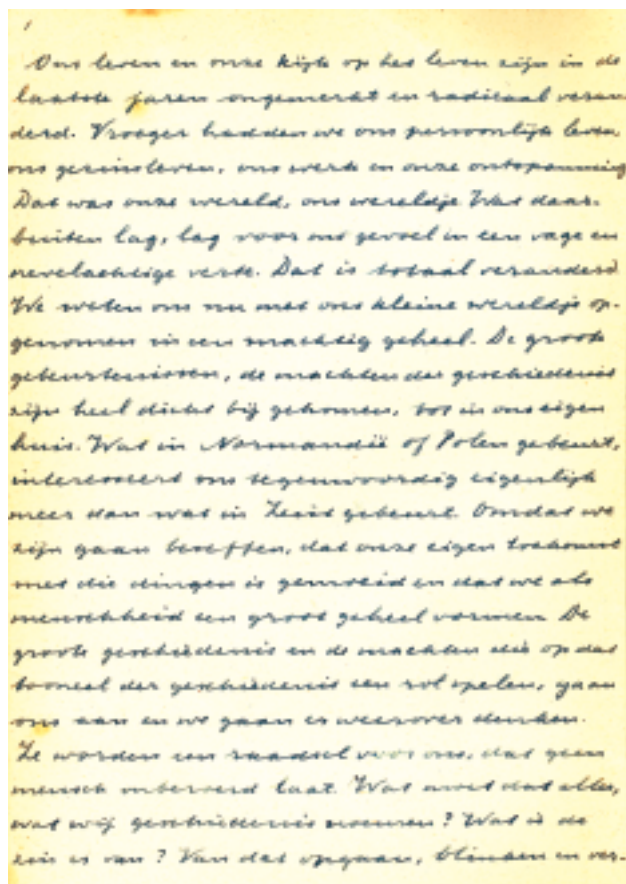 1
Ons leven en onze kijk op het leven zijn in de
laatste jaren ongemerkt en radicaal veran-
derd. Vroeger hadden we ons persoonlijk leven
ons gezinsleven, ons werk en onze ontspanning
Dat was onze wereld, ons wereldje Wat daar-
buiten lag, lag voor ons gevoel in een vage en
nevelachtige verte. Dat is totaal veranderd
We weten ons nu met ons kleine wereldje op-
genomen in een machtig geheel. De groote
gebeurtenissen, de machten der geschiedenis
zijn heel dicht bij gekomen, tot in ons eigen
huis. Wat in Normandië of Polen gebeurt,
interesseert ons tegenwoordig eigenlijk
meer dan wat in Zeist gebeurt. Omdat we
zijn gaan beseffen, dat onze eigen toekomst
met die dingen is gemoeid en dat we als
menschheid een groot geheel vormen De
groote geschiedenis en de machten die op dat
tooneel der geschiedenis een rol spelen, gaan
ons aan en we gaan er weer over denken.
Ze worden een raadsel voor ons, dat geen
mensch onberoerd laat. Wat moet dat alles,
wat wij geschiedenis noemen? Wat is de
zin er van? Van dat opgaan, blinken en ver-